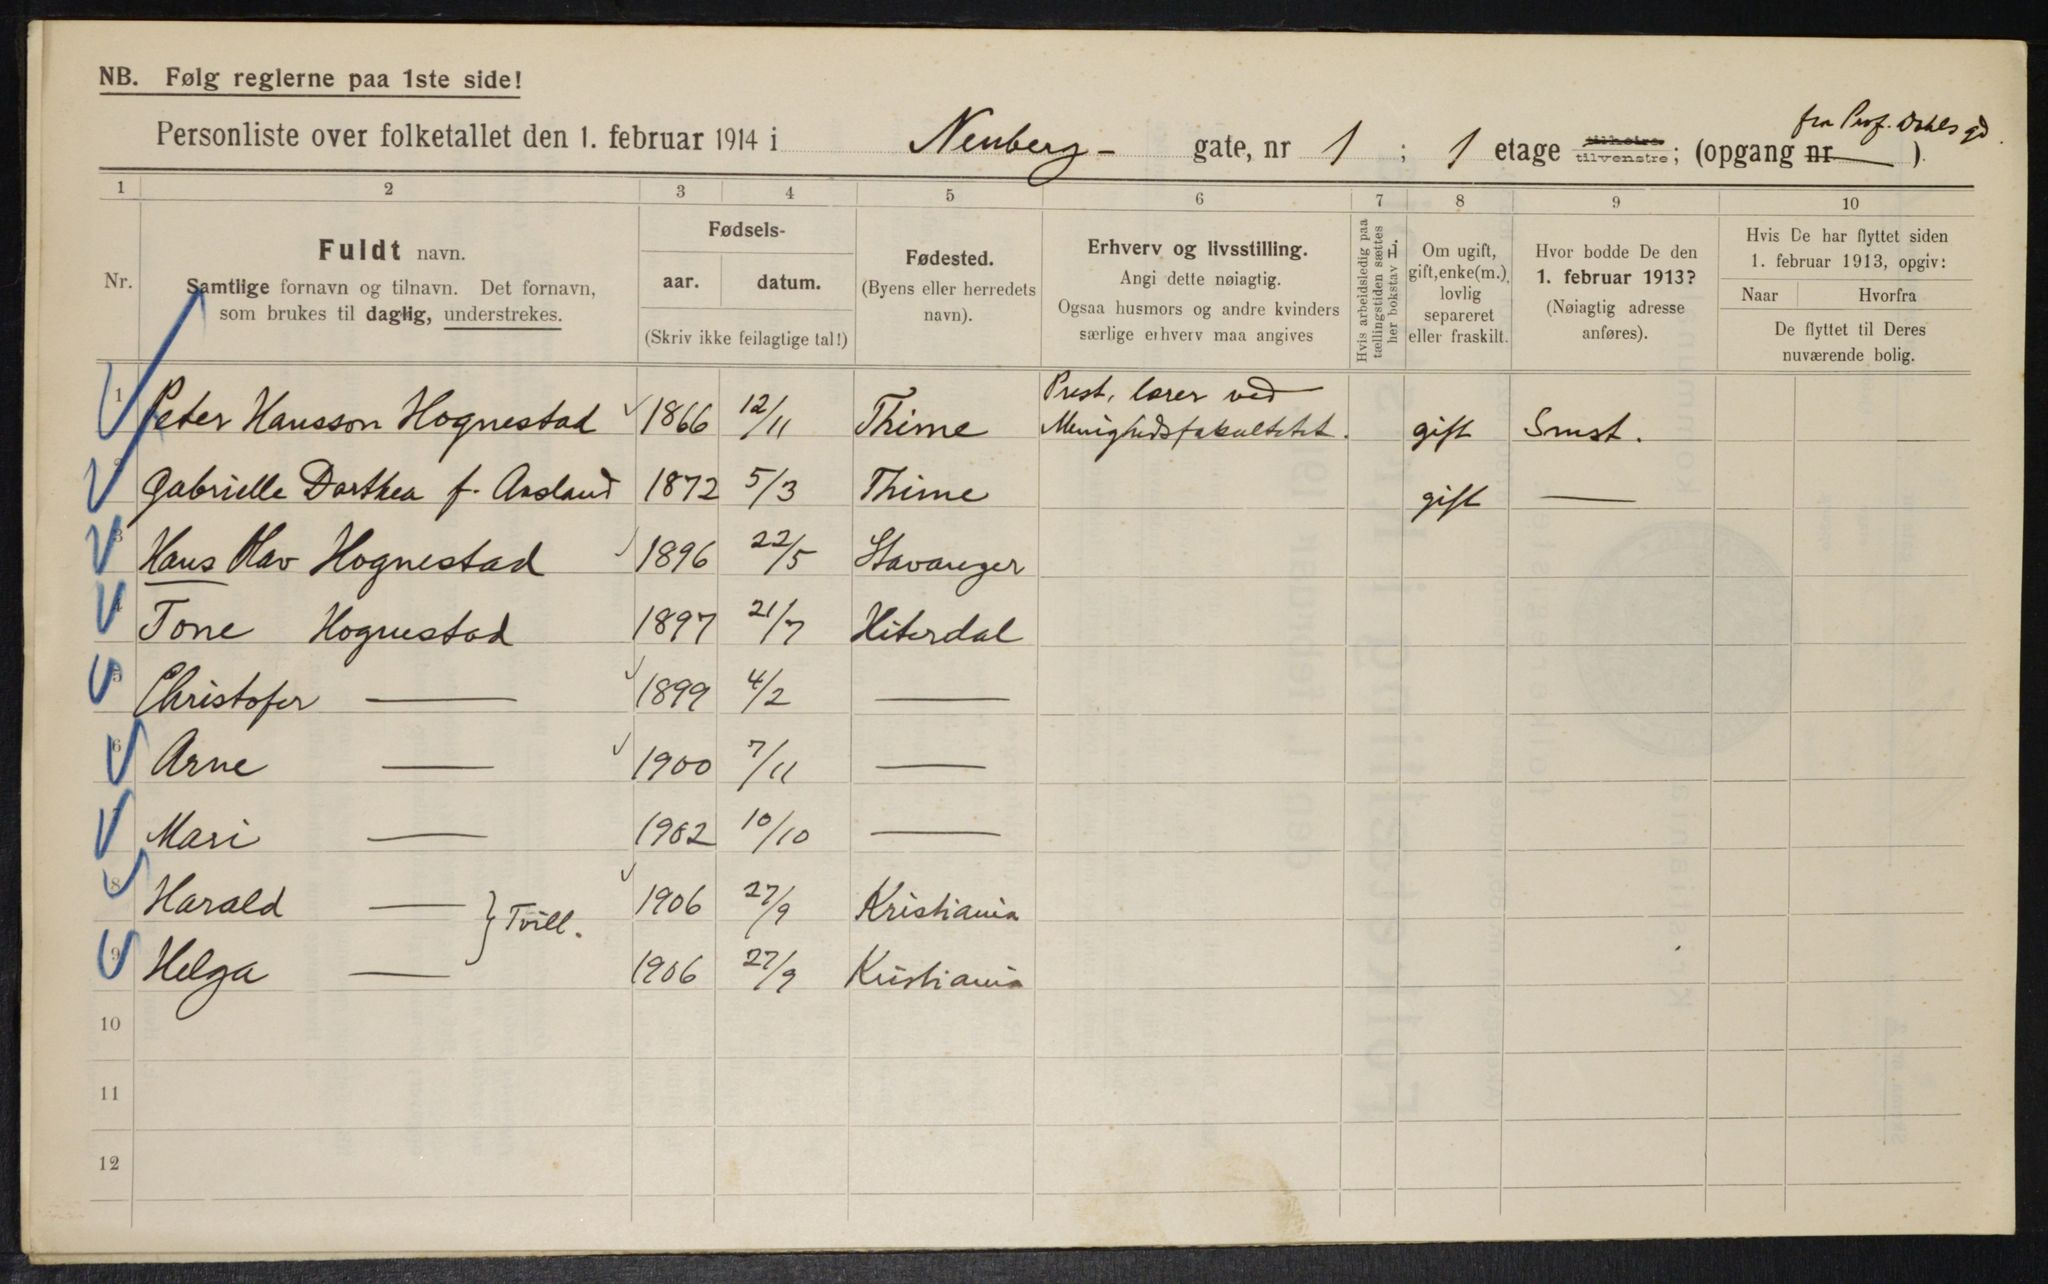 NB. Følg reglerne paa 1ste side!
fra Prof. Dahls gd.
Personliste over folketallet den 1. februar 1914 i Neuberg- gate, nr 1 ; 1 etage tilhøire tilvenstre; (opgang nr ).
1 2 3 4 5 6 7 8 9 10
Nr.
Fuldt navn.
Samtlige fornavn og tilnavn. Det fornavn,
som brukes til daglig, understrekes.
Fødsels-
aar. datum.
(Skriv ikke feilagtige tal!)
Fødested.
(Byens eller herredets
navn).
Erhverv og livsstilling.
Angi dette nøiagtig.
Ogsaa husmors og andre kvinders
særlige erhverv maa angives
Hvis arbeidsledig paa
tællingstiden sættes
her bokstav L.
Om ugift,
gift, enke(m.),
lovlig
separeret
eller fraskilt.
Hvor bodde De den
1. februar 1913?
(Nøiagtig adresse
anføres).
Hvis De har flyttet siden
1. februar 1913, opgiv:
Naar Hvorfra
De flyttet til Deres
nuværende bolig.
1 Peter Hansson Hognestad 1866 12/11 Thime Prest, lærer ved
Menighedsfakultetet. gift Smst.
2 Gabrielle Dorthea f. Aasland 1872 5/3 Thime gift —
3 Hans Olav Hognestad 1896 22/5 Stavanger
4 Tone Hognestad 1897 21/7 Hiterdal
5 Christofer — 1899 4/2 —
6 Arne — 1900 7/11 —
7 Mari — 1902 10/10 —
8 Harald — } Tvill. 1906 27/9 Kristiania
9 Helga — 1906 27/9 Kristiania
10
11
12